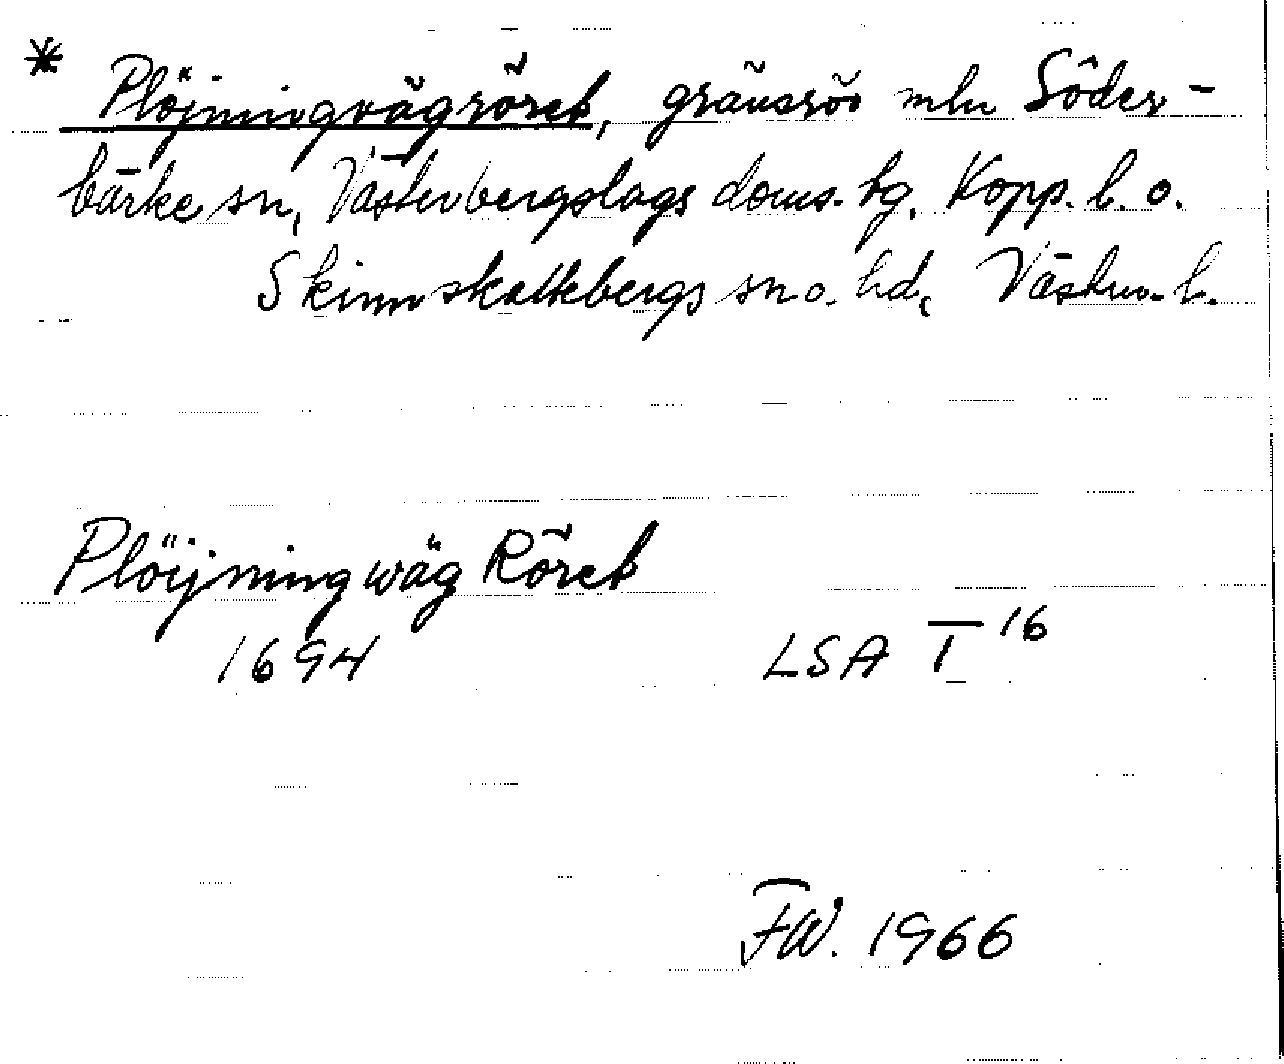 * Plöjningvägröret, gränsrör mln Söder-
bärke sn, Västerbergslags doms. tg. Kopp. l. o.
Skinnskattebergs sn o. hd, Västm. l.
Plöijning wäg Röret
1694 LSA I 16
FW. 1966